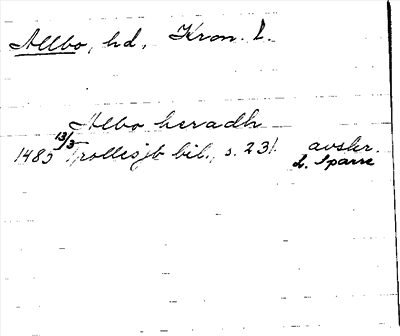 Allbo, hd, Kron. l.
Albo heradh
1485 13/3 Trolleöjb bil., s. 231. avskr.
L. Sparre